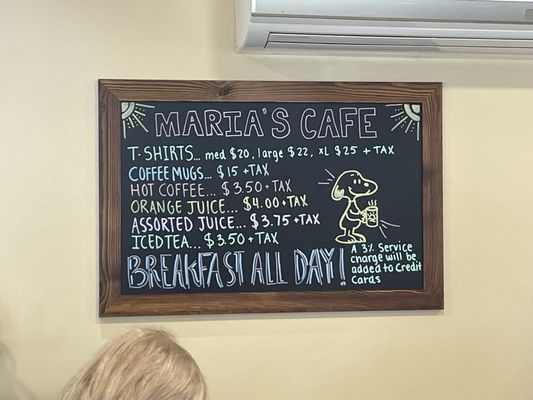 MARIA'S CAFE
T-SHIRTS... med $20, large $22, XL $25 + TAX
COFFEE MUGS... $15 +TAX
HOT COFFEE... $3.50 +TAX
ORANGE JUICE... $4.00 +TAX
ASSORTED JUICE... $3.75 +TAX
ICED TEA... $3.50 +TAX
BREAKFAST ALL DAY!
A 3% Service
charge will be
added to Credit
Cards